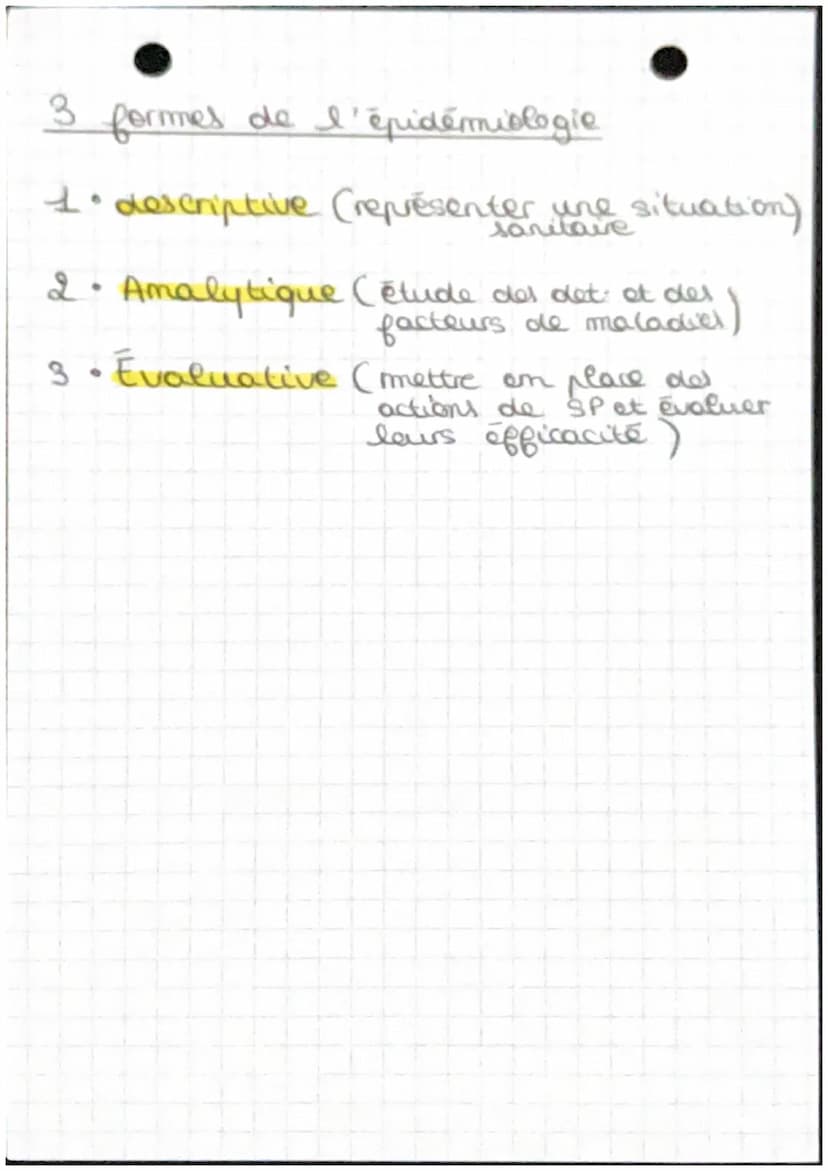 3 formes de l'épidémiologie
1. descriptive (représenter une situation)
sanitaire
2. Analytique (étude des det. et des
facteurs de maladies)
3. Évaluative (mettre en place des
actions de SP et évaluer
leurs éfficacité)